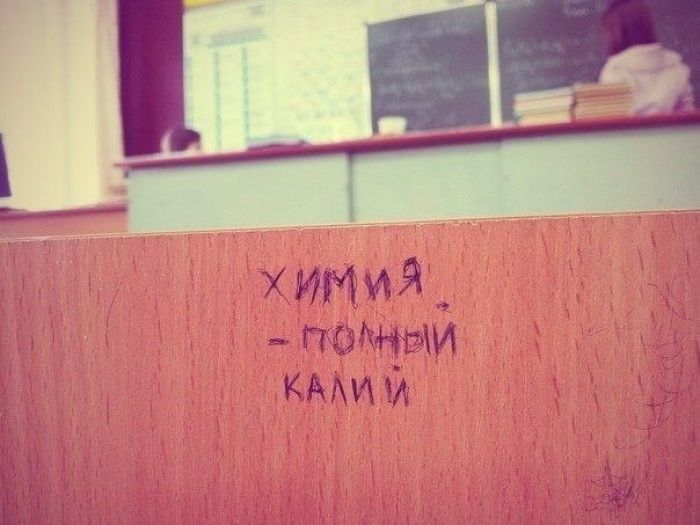 ХИМИЯ
- ПОЛНЫЙ
КАЛИЙ